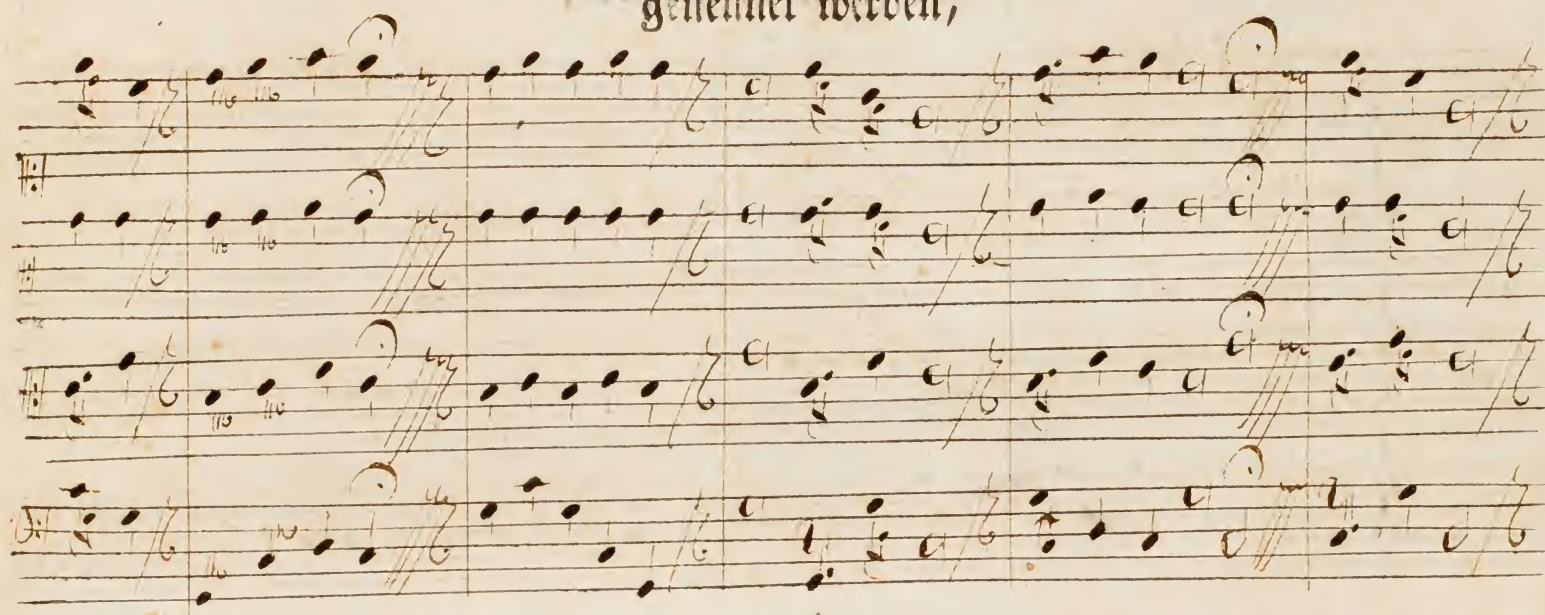 genennet werden,